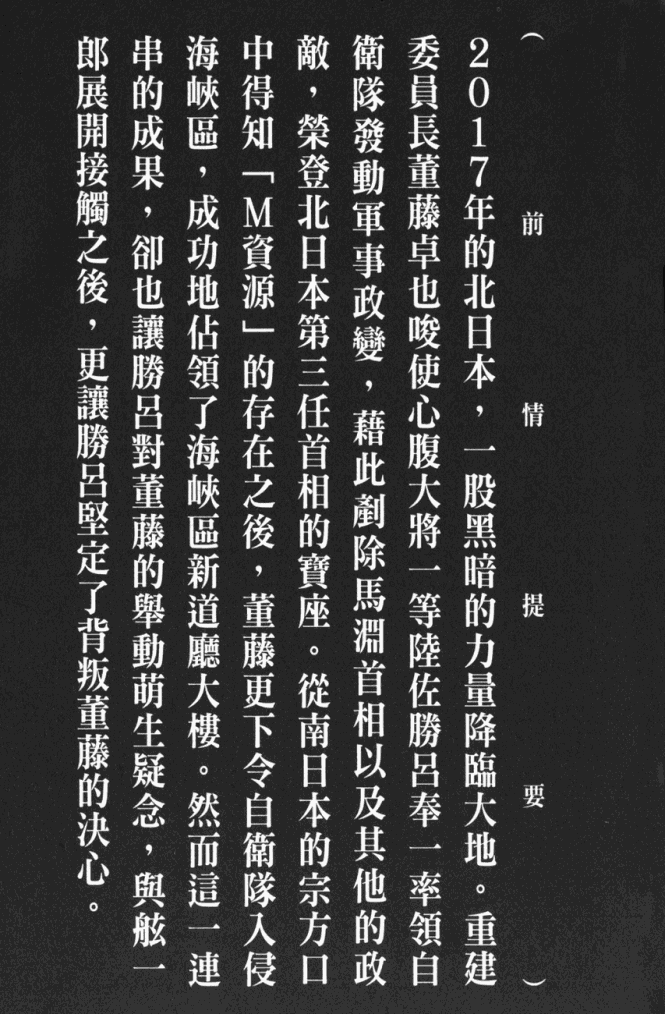 （前情提要）
2017年的北日本，一股黑暗的力量降臨大地。重建
委員長董藤卓也唆使心腹大將一等陸佐勝呂奉一率領自
衛隊發動軍事政變，藉此剷除馬淵首相以及其他的政
敵，榮登北日本第三任首相的寶座。從南日本的宗方口
中得知「M資源」的存在之後，董藤更下令自衛隊入侵
海峽區，成功地佔領了海峽區新道廳大樓。然而這一連
串的成果，卻也讓勝呂對董藤的舉動萌生疑念，與舷一
郎展開接觸之後，更讓勝呂堅定了背叛董藤的決心。